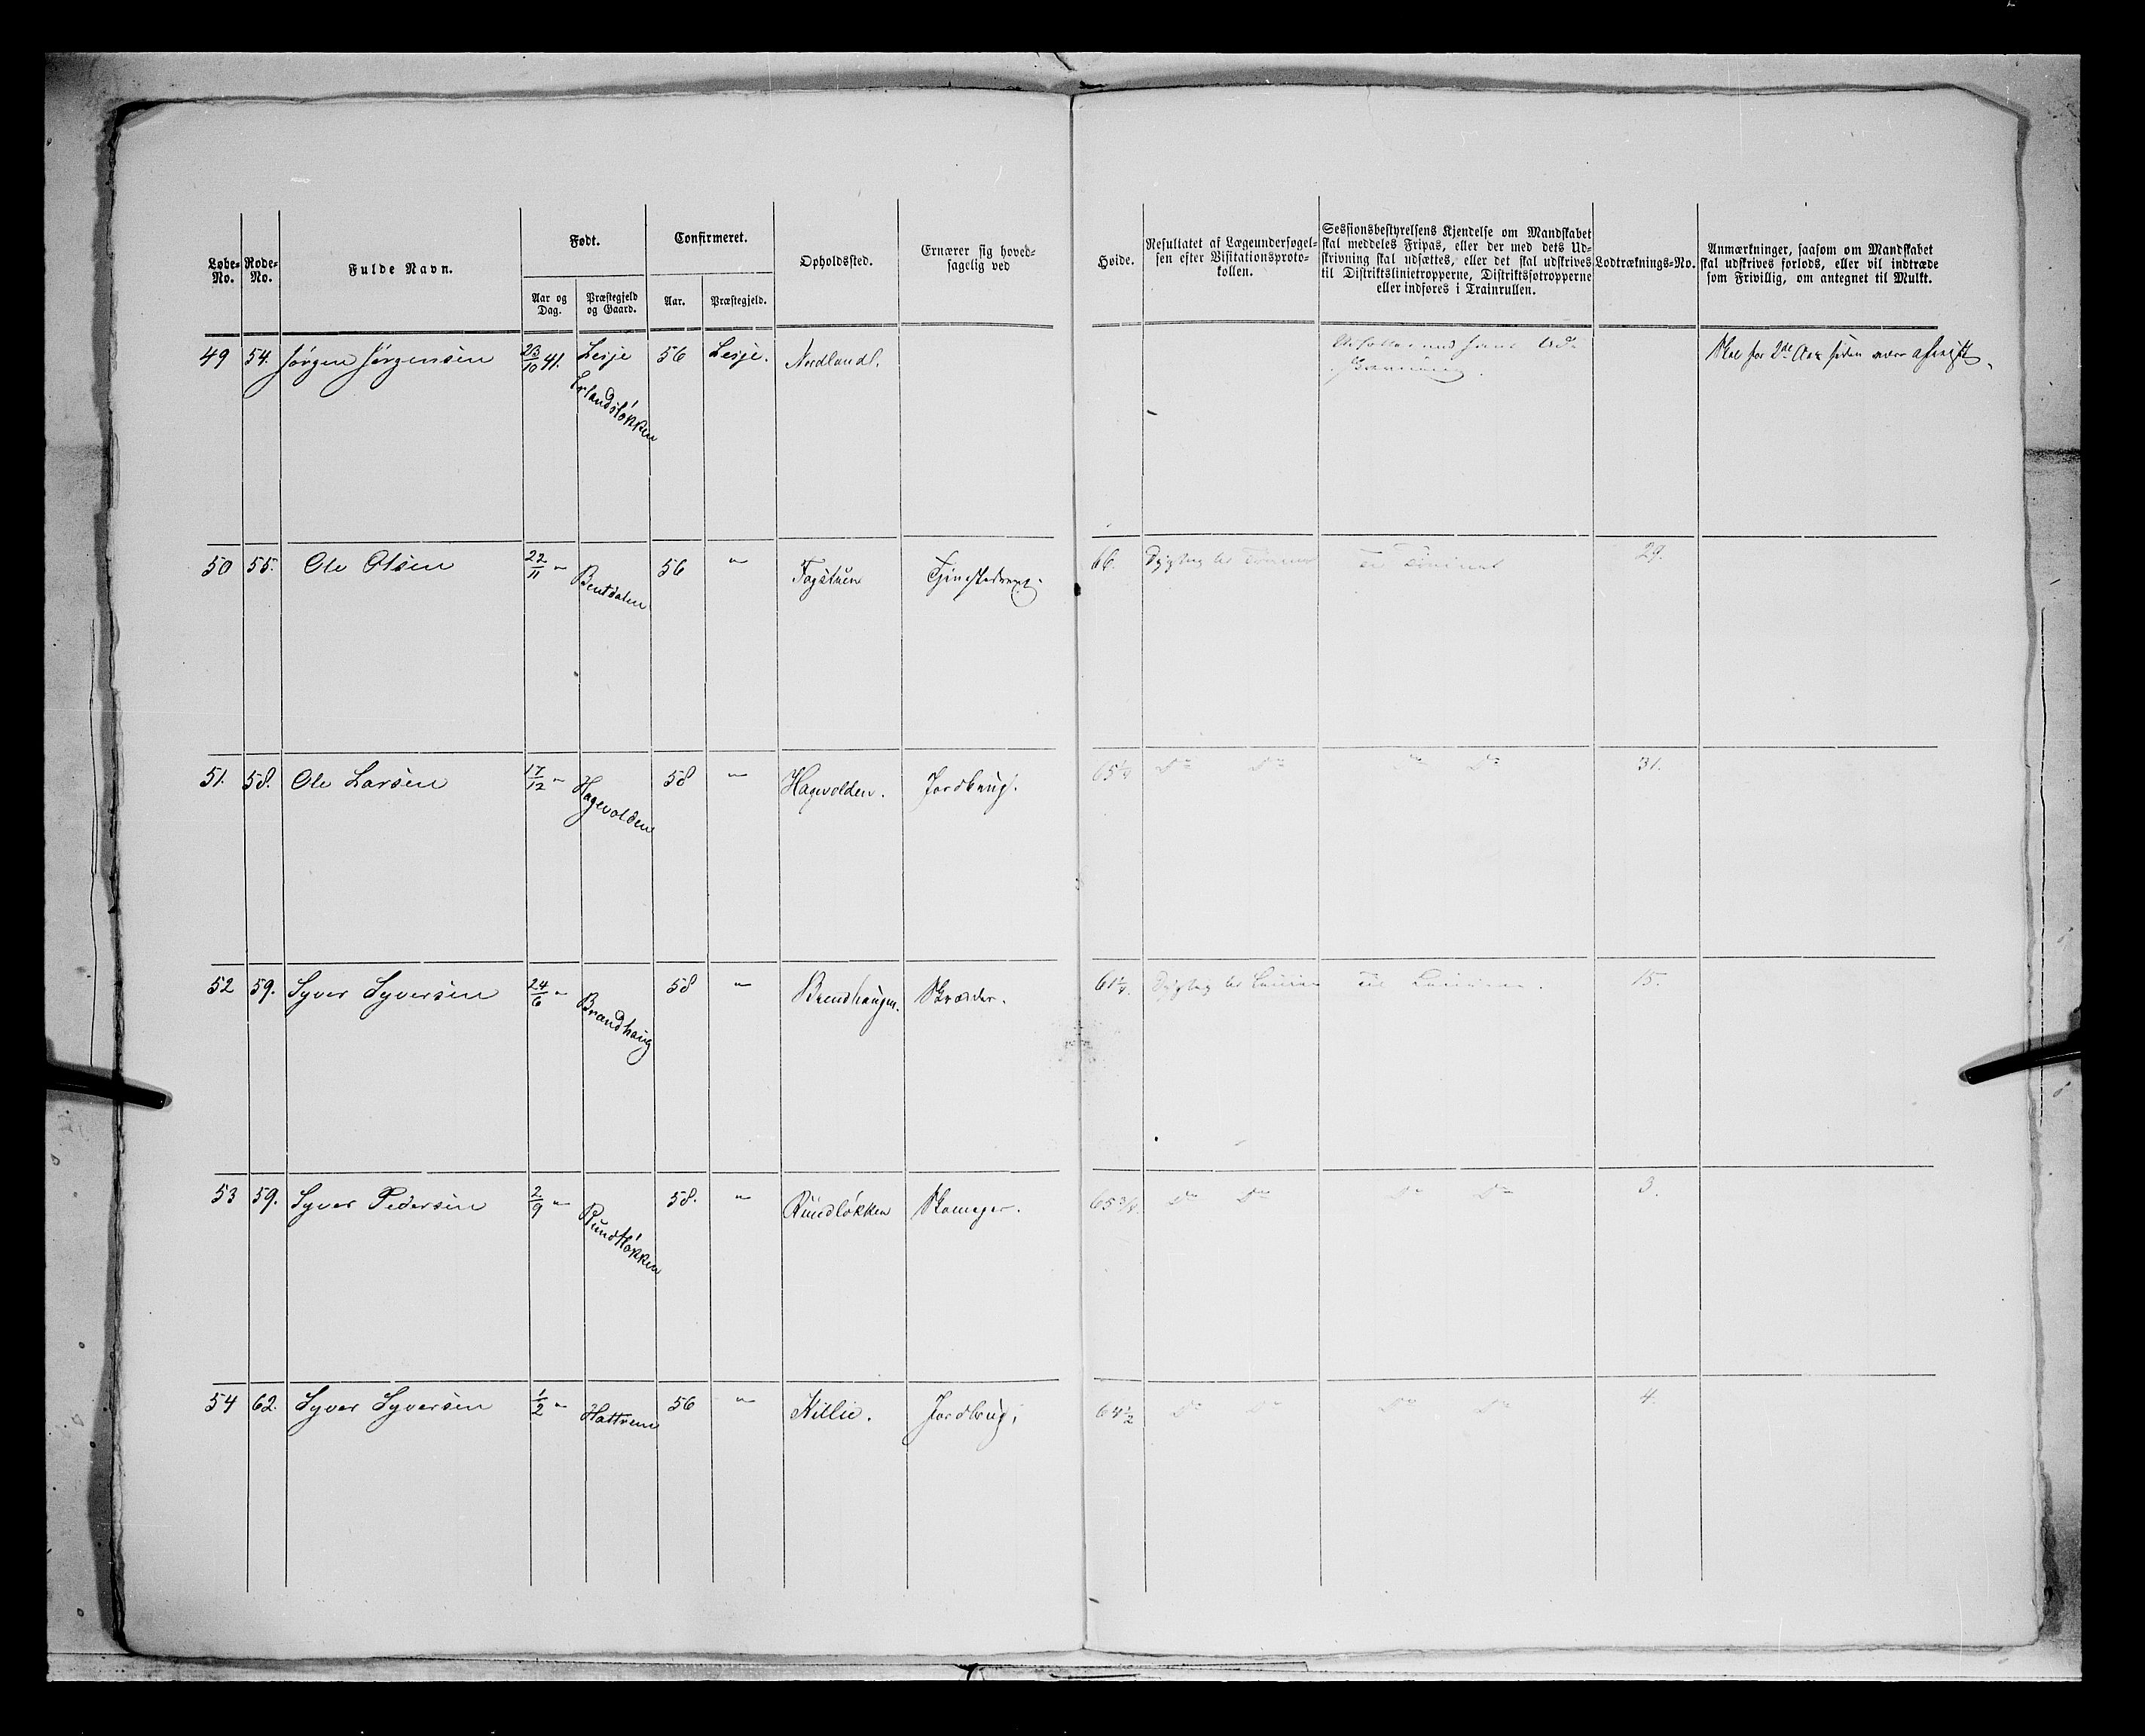 Løbe-No. Rode-No. Fulde Navn. Født. Confirmeret. Opholdssted. Ernærer sig hoved-sagelig ved
Aar og Dag. Præstegjeld og Gaard. Aar. Præstegjeld.
Høide. Resultatet af Lægeundersøgel-sen efter Visitationsproto-kollen. Sessionsbestyrelsens Kjendelse om Mandskabet skal meddeles Fripas, eller der med dets Ud-skrivning skal udsættes, eller det skal udskrives til Distriktslinietropperne, Distriktsfotropperne eller indføres i Trainrullen. Lodtræknings-No. Anmærkninger, saasom om Mandskabet skal udskrives forlods, eller vil indtræde som Frivillig, om antegnet til Mulkt.
49 54. Jørgen Jørgensen 23/10 41. Lesje 56 Lesje. Nordland. Skal for 2de Aar siden være afreist.
Erlandsløkken
50 55. Ole Olsen 22/11 " Bentdalen 56 " Togstuen 66. 29.
51. 58. Ole Larsen 17/12 " Hagevolden 58 " Hagevolden. Jordbrug. 65 1/4 Do Do Do Do 31.
52 59. Syver Syversen 24/6 " Brandhaug 58 " Brendhaugen. Skrædder. 61 1/4. 15.
53 59. Syver Pedersen 2/9 " Rundløkken 58. " Rundløkken Skomager. 65 3/4. Do Do Do Do 3.
54 62. Syver Syversen 1/2 " Hattrem 56 " Killie. Jordbrug. 64 1/2 Do Do Do Do 4.